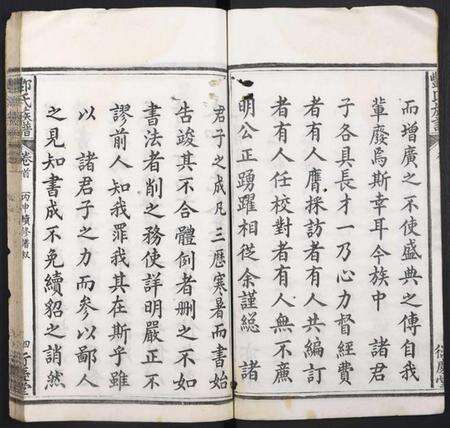 而增廣之不使盛典之傳自我
輩廢焉斯幸耳今族中 諸君
子各具長才一乃心力督經費
者有人膺採訪者有人共編訂
者有人任校對者有人無不廉
明公正踴躍相從余謹總 諸
君子之成凡三歷寒暑而書始
告竣其不合體例者删之不如
書法者削之務使詳明嚴正不
謬前人知我罪我其在斯乎雖
以 諸君子之力而參以鄙人
之見知書成不免續貂之誚然
氏族譜 卷首 丙申續修譜叙 四